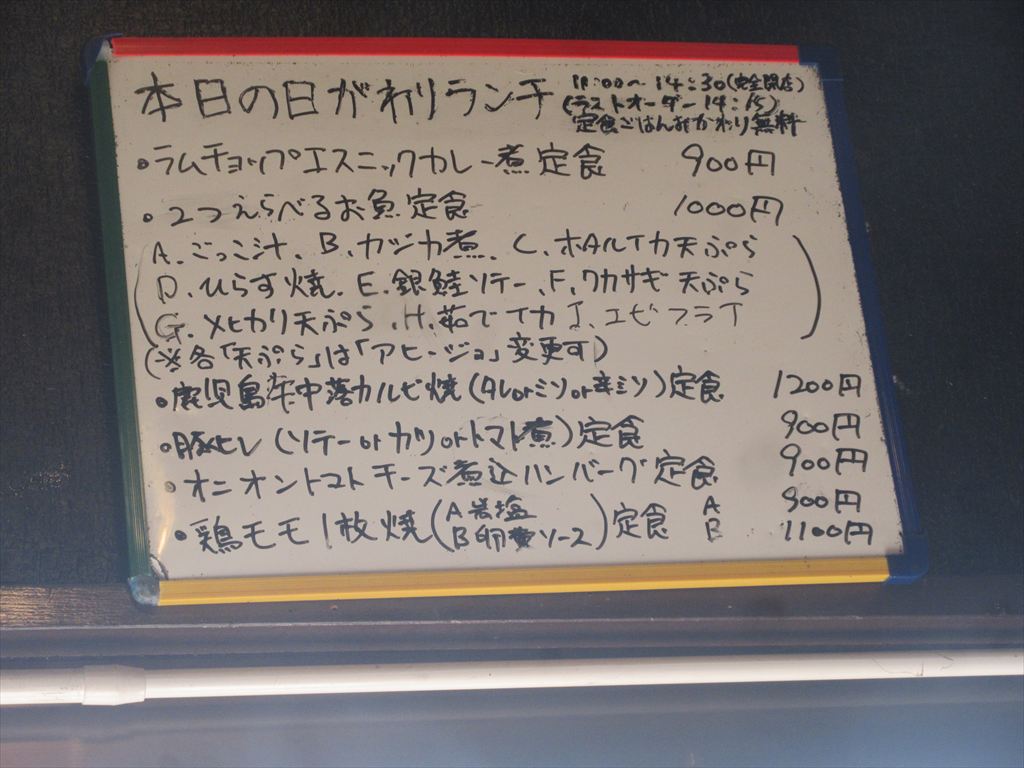 本日の日がわりランチ 11:00〜14:30(完全閉店)
(ラストオーダー14:15)
定食ごはんおかわり無料
・ラムチョップエスニックカレー煮定食 900円
・2つえらべるお魚定食 1000円
(A.ごっこ汁.B.カジカ煮.C.ホタルイカ天ぷら
D.ひらす焼.E.銀鮭ソテー.F.ワカサギ天ぷら
G.メヒカリ天ぷら.H.茹でイカ I.エビフライ)
(※各「天ぷら」は「アヒージョ」変更可)
・鹿児島産牛中落カルビ焼(タレorミソor辛ミソ)定食 1200円
・豚ヒレ(ソテーorカツorトマト煮)定食 900円
・オニオントマトチーズ煮込ハンバーグ定食 900円
・鶏モモ1枚焼(A岩塩 B卵黄ソース)定食 A 900円
B 1100円